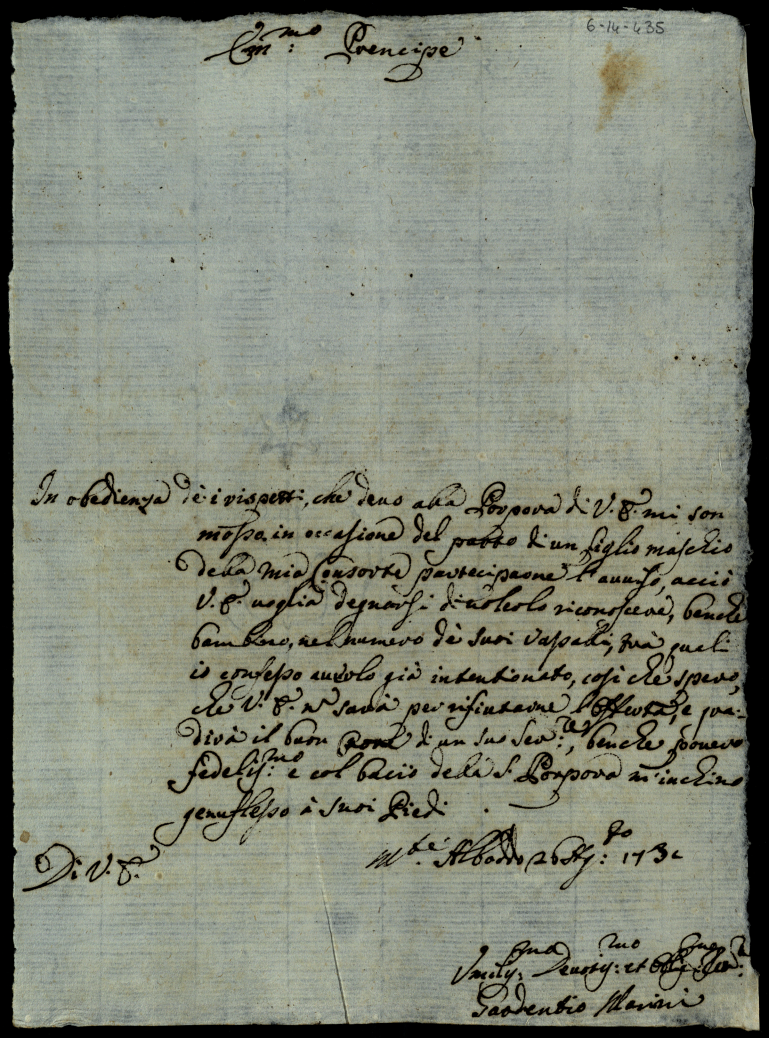 6-14-435
Em:mo Prencipe
In obedienza de i rispetti, che devo alla Porpora di V. E. mi son
mosso, in occasione del parto di un figlio maschio
della mia Consorte parteciparne l'avviso, acciò
V. E. voglia degnarsi di volerlo riconoscere, benche
bambino, nel numero de suoi vassalli, trà quali
io confesso averlo già intentionato, così che spero,
che V. E. n. sarà per rifiutarne l'offerta, e gra-
dirà il buon di un suo Ser:re, benche povero
fedeliss:mo e col bacio della S. Porpora m'inchino
genuflesso à suoi Piedi
Di V. E.
M.te Alboddo 26 Ag:to 173
Umilis:mo Devotis:mo et Obl:mo Ser:
Gaodentio Marini